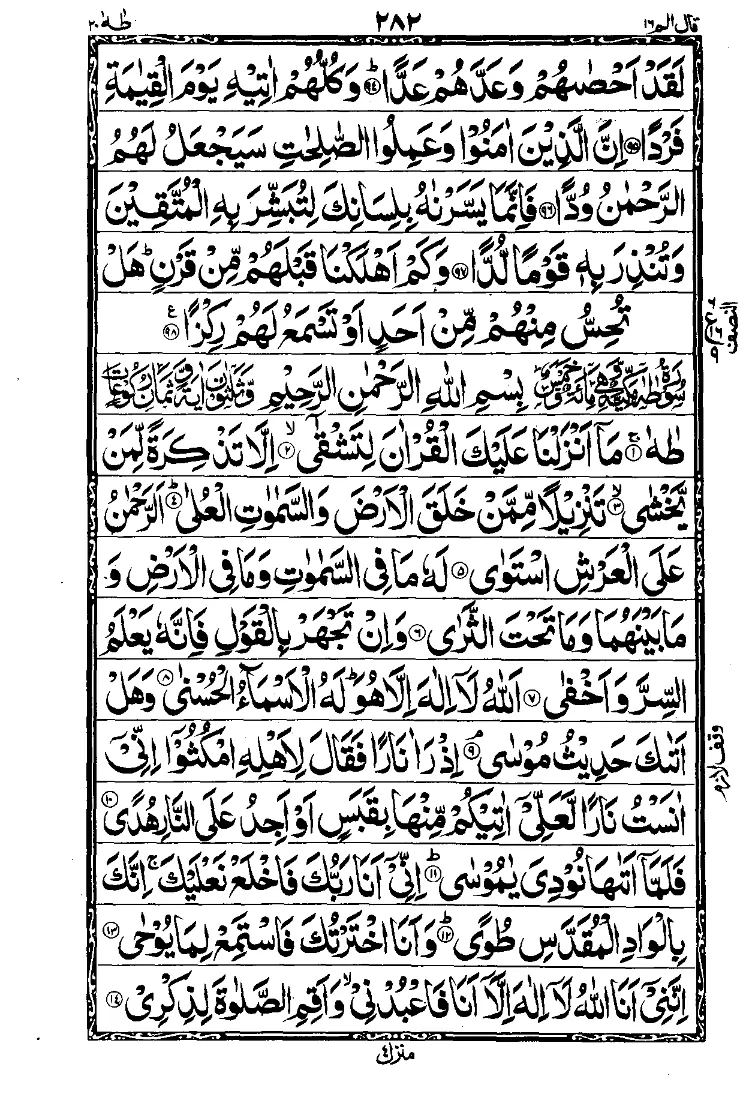 قال الم ١٦ ٢٨٢ طٰهٰ ٢٠
لَقَدْ اَحْصٰىهُمْ وَعَدَّهُمْ عَدًّا ؕ﴿۹۴﴾ وَكُلُّهُمْ اٰتِيْهِ يَوْمَ الْقِيٰمَةِ
فَرْدًا ﴿۹۵﴾ اِنَّ الَّذِيْنَ اٰمَنُوْا وَعَمِلُوا الصّٰلِحٰتِ سَيَجْعَلُ لَهُمُ
الرَّحْمٰنُ وُدًّا ﴿۹۶﴾ فَاِنَّمَا يَسَّرْنٰهُ بِلِسَانِكَ لِتُبَشِّرَ بِهِ الْمُتَّقِيْنَ
وَتُنْذِرَ بِهٖ قَوْمًا لُّدًّا ﴿۹۷﴾ وَكَمْ اَهْلَكْنَا قَبْلَهُمْ مِّنْ قَرْنٍ ؕ هَلْ
تُحِسُّ مِنْهُمْ مِّنْ اَحَدٍ اَوْ تَسْمَعُ لَهُمْ رِكْزًا ﴿۹۸﴾ ع
النصف
بِسْمِ اللّٰهِ الرَّحْمٰنِ الرَّحِيْمِ
طٰهٰ ۚ﴿۱﴾ مَاۤ اَنْزَلْنَا عَلَيْكَ الْقُرْاٰنَ لِتَشْقٰۤى ۙ﴿۲﴾ اِلَّا تَذْكِرَةً لِّمَنْ
يَّخْشٰى ۙ﴿۳﴾ تَنْزِيْلًا مِّمَّنْ خَلَقَ الْاَرْضَ وَالسَّمٰوٰتِ الْعُلٰى ؕ﴿۴﴾ اَلرَّحْمٰنُ
عَلَى الْعَرْشِ اسْتَوٰى ﴿۵﴾ لَهٗ مَا فِى السَّمٰوٰتِ وَمَا فِى الْاَرْضِ وَ
مَا بَيْنَهُمَا وَمَا تَحْتَ الثَّرٰى ﴿۶﴾ وَاِنْ تَجْهَرْ بِالْقَوْلِ فَاِنَّهٗ يَعْلَمُ
السِّرَّ وَاَخْفٰى ﴿۷﴾ اَللّٰهُ لَاۤ اِلٰهَ اِلَّا هُوَ ؕ لَهُ الْاَسْمَآءُ الْحُسْنٰى ﴿۸﴾ وَهَلْ
اَتٰىكَ حَدِيْثُ مُوْسٰى ۘ﴿۹﴾ اِذْ رَاٰ نَارًا فَقَالَ لِاَهْلِهِ امْكُثُوْۤا اِنِّىْۤ
وقف لازم
اٰنَسْتُ نَارًا لَّعَلِّىْۤ اٰتِيْكُمْ مِّنْهَا بِقَبَسٍ اَوْ اَجِدُ عَلَى النَّارِ هُدًى ﴿۱۰﴾
فَلَمَّاۤ اَتٰىهَا نُوْدِىَ يٰمُوْسٰى ؕ﴿۱۱﴾ اِنِّىْۤ اَنَا رَبُّكَ فَاخْلَعْ نَعْلَيْكَ ۚ اِنَّكَ
بِالْوَادِ الْمُقَدَّسِ طُوًى ؕ﴿۱۲﴾ وَاَنَا اخْتَرْتُكَ فَاسْتَمِعْ لِمَا يُوْحٰى ﴿۱۳﴾
اِنَّنِىْۤ اَنَا اللّٰهُ لَاۤ اِلٰهَ اِلَّاۤ اَنَا فَاعْبُدْنِىْ ۙ وَاَقِمِ الصَّلٰوةَ لِذِكْرِىْ ﴿۱۴﴾
منزل ٤